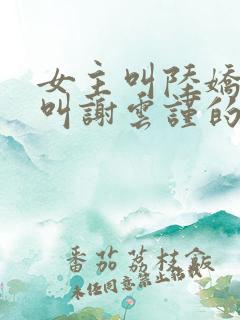 女主叫陸嬌
叫謝雲謹的
番茄荔枝飯
未任同意禁止轉載